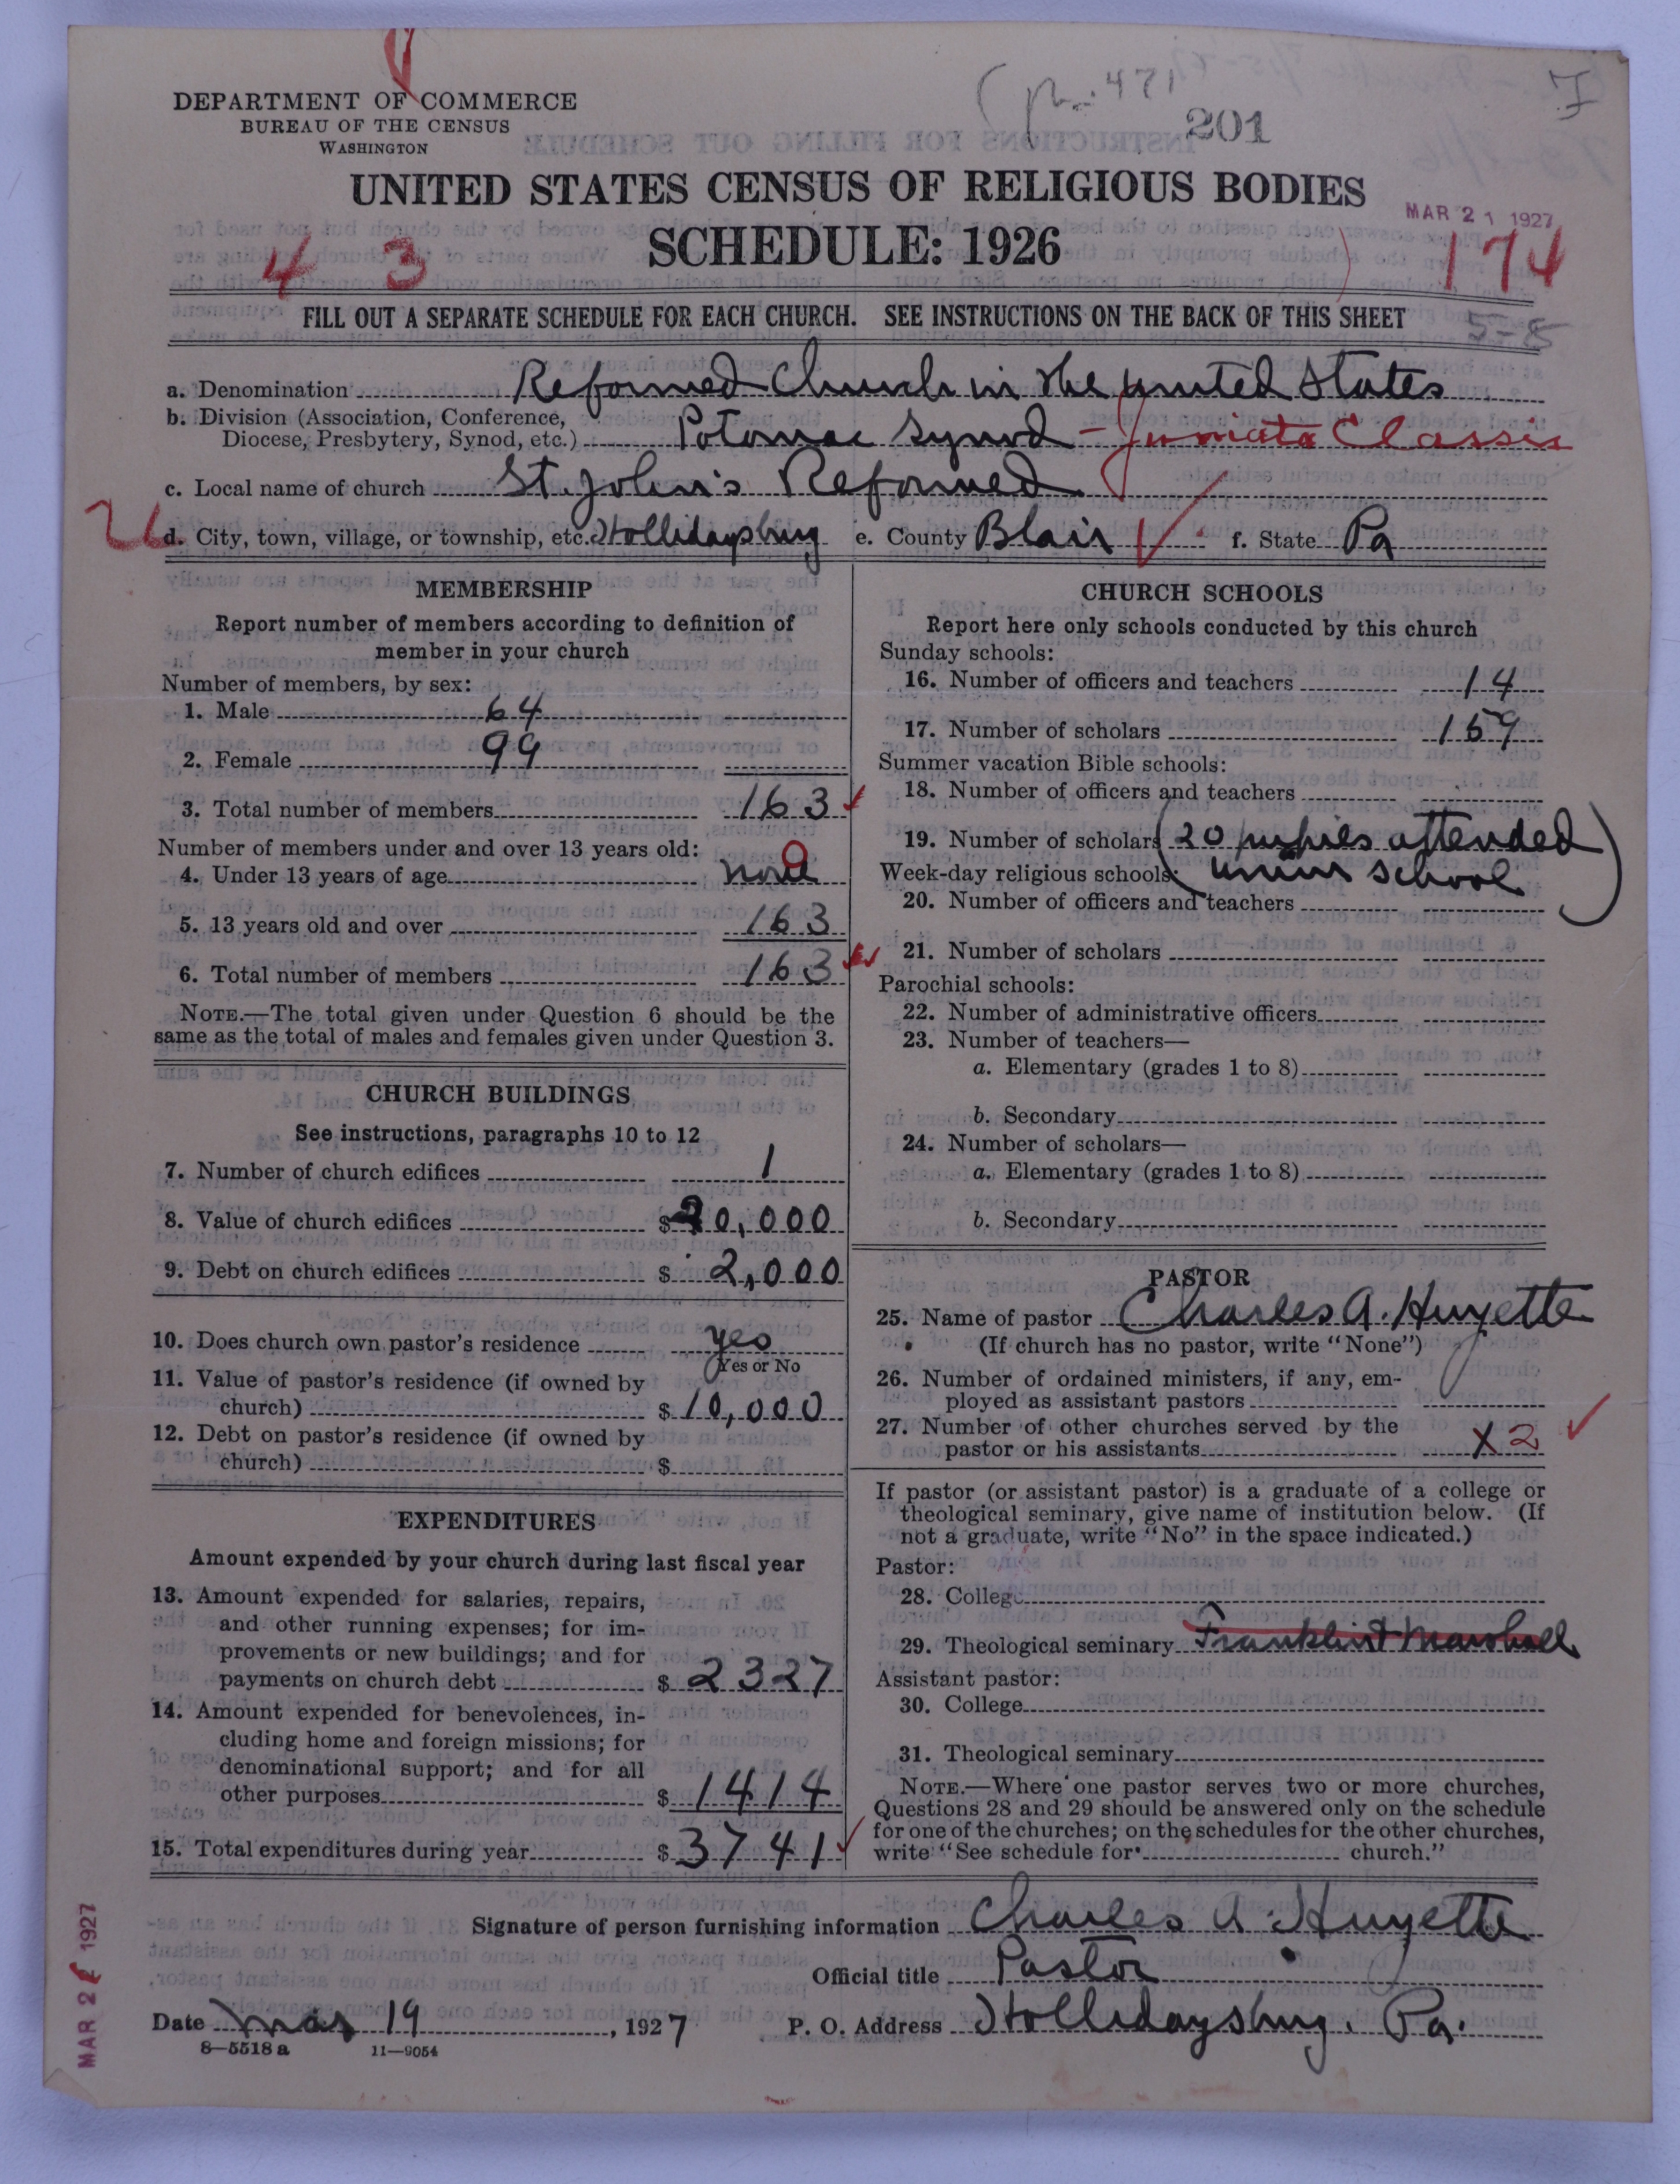 DEPARTMENT OF COMMERCE
BUREAU OF THE CENSUS
WASHINGTON
201
UNITED STATES CENSUS OF RELIGIOUS BODIES
MAR 21 1927
SCHEDULE: 1926
4 3
174
FILL OUT A SEPARATE SCHEDULE FOR EACH CHURCH. SEE INSTRUCTIONS ON THE BACK OF THIS SHEET
5-8
a. Denomination Reformed Church in the United States
b. Division (Association, Conference,
Diocese, Presbytery, Synod, etc.) Potomac Synod - Juniata Classis
c. Local name of church St. John's Reformed
26
d. City, town, village, or township, etc. Hollidaysburg e. County Blair f. State Pa
MEMBERSHIP
Report number of members according to definition of
member in your church
Number of members, by sex:
1. Male 64
2. Female 99
3. Total number of members 163
Number of members under and over 13 years old:
4. Under 13 years of age none
5. 13 years old and over 163
6. Total number of members 163
NOTE.—The total given under Question 6 should be the
same as the total of males and females given under Question 3.
CHURCH BUILDINGS
See instructions, paragraphs 10 to 12
7. Number of church edifices 1
8. Value of church edifices $ 20,000
9. Debt on church edifices $ 2,000
10. Does church own pastor's residence yes
Yes or No
11. Value of pastor's residence (if owned by
church) $ 10,000
12. Debt on pastor's residence (if owned by
church) $
EXPENDITURES
Amount expended by your church during last fiscal year
13. Amount expended for salaries, repairs,
and other running expenses; for im-
provements or new buildings; and for
payments on church debt $ 2327
14. Amount expended for benevolences, in-
cluding home and foreign missions; for
denominational support; and for all
other purposes $ 1414
15. Total expenditures during year $ 3741
CHURCH SCHOOLS
Report here only schools conducted by this church
Sunday schools:
16. Number of officers and teachers 14
17. Number of scholars 159
Summer vacation Bible schools:
18. Number of officers and teachers
19. Number of scholars (20 pupils attended
Week-day religious schools: union school)
20. Number of officers and teachers
21. Number of scholars
Parochial schools:
22. Number of administrative officers
23. Number of teachers—
a. Elementary (grades 1 to 8)
b. Secondary
24. Number of scholars—
a. Elementary (grades 1 to 8)
b. Secondary
PASTOR
25. Name of pastor Charles A. Huyette
(If church has no pastor, write "None")
26. Number of ordained ministers, if any, em-
ployed as assistant pastors
27. Number of other churches served by the
pastor or his assistants X 2
If pastor (or assistant pastor) is a graduate of a college or
theological seminary, give name of institution below. (If
not a graduate, write "No" in the space indicated.)
Pastor:
28. College
29. Theological seminary Franklin & Marshall
Assistant pastor:
30. College
31. Theological seminary
NOTE.—Where one pastor serves two or more churches,
Questions 28 and 29 should be answered only on the schedule
for one of the churches; on the schedules for the other churches,
write "See schedule for church."
Signature of person furnishing information Charles A. Huyette
Official title Pastor
Date Mar 19, 1927 P. O. Address Hollidaysburg. Pa.
8—5518 a 11—9054